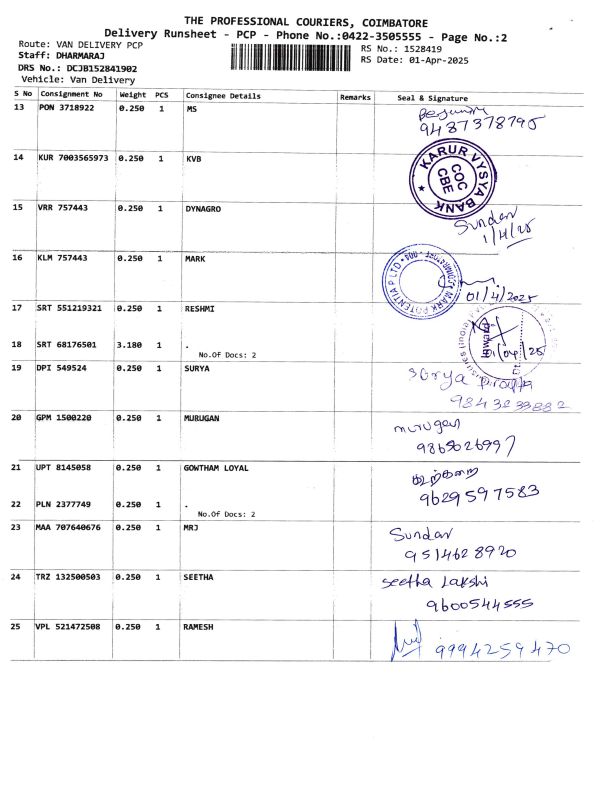 THE PROFESSIONAL COURIERS, COIMBATORE
Delivery Runsheet - PCP - Phone No.:0422-3505555 - Page No.:2
Route: VAN DELIVERY PCP
RS No.: 1528419
Staff: DHARMARAJ
RS Date: 01-Apr-2025
DRS No.: DCJB152841902
Vehicle: Van Delivery
S No Consignment No Weight PCS Consignee Details Remarks Seal & Signature
13 PON 3718922 0.250 1 MS
9487378795
14 KUR 7003565973 0.250 1 KVB
KARUR VYSYA BANK
COC
CBE
15 VRR 757443 0.250 1 DYNAGRO
Sundar
1/4/25
16 KLM 757443 0.250 1 MARK
MARK POTENTIA P LTD
01/4/2025
17 SRT 551219321 0.250 1 RESHMI
Inward
18 SRT 68176501 3.180 1 .
No.Of Docs: 2
01/04/25
19 DPI 549524 0.250 1 SURYA
Surya
9843233882
20 GPM 1500220 0.250 1 MURUGAN
murugan
9865026997
21 UPT 8145058 0.250 1 GOWTHAM LOYAL
9629597583
22 PLN 2377749 0.250 1 .
No.Of Docs: 2
23 MAA 707640676 0.250 1 MRJ
Sundar
9514628920
24 TRZ 132500503 0.250 1 SEETHA
Seetha Lakshi
9600544555
25 VPL 521472508 0.250 1 RAMESH
9994259470